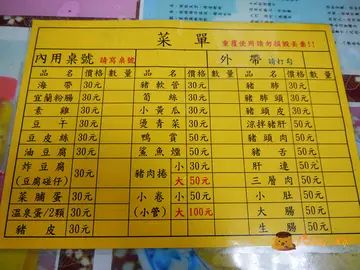 菜單
重複使用請勿摧毀丟棄!!
內用桌號 請寫桌號 外帶 請打勾
品名 價格 數量 品名 價格 數量 品名 價格 數量
海帶 30元 豬軟管 30元 豬肺 30元
宜蘭粉腸 30元 筍絲 30元 豬肺頭 30元
素雞 30元 小黃瓜 30元 豬頭皮 30元
豆干 30元 燙青菜 30元 涼拌豬肝 50元
豆皮絲 30元 鴨賞 50元 豬頭肉 50元
油豆腐 30元 鯊魚煙 50元 豬舌 50元
炸豆腐(豆腐碰仔) 30元 豬肉捲 小 30元 肝連 50元
大 50元 三層肉 50元
菜脯蛋 30元 小卷(小管) 小 50元 小肚 50元
溫泉蛋/2顆 30元 大 100元 大腸 50元
豬皮 30元 生腸 50元